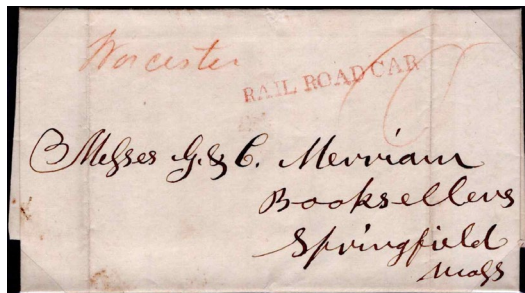 Worcester
RAIL ROAD CAR
Messes G. & C. Merriam
Booksellers
Springfield
Mass